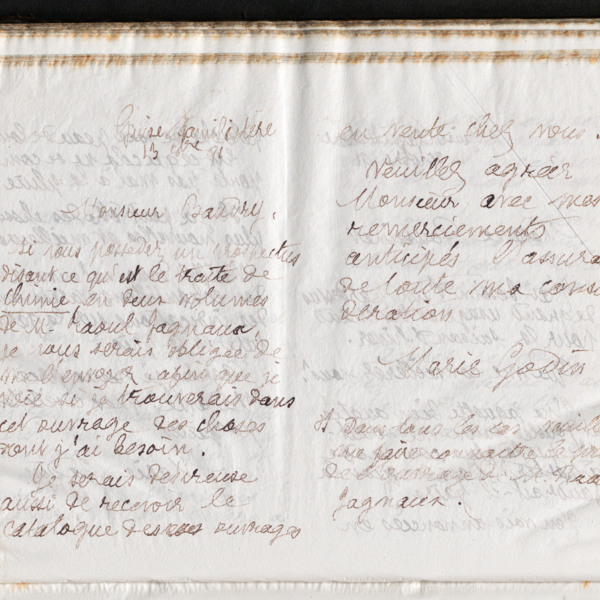 Guise Familistère
13 9bre 91
Monsieur Baudry,
si vous possédez un prospectus
disant ce qu'est le traité de
chimie en deux volumes
de M. Raoul Jagnaux,
je vous serais obligée de
me l'envoyer afin que je
voie si je trouverais dans
cet ouvrage des choses
dont j'ai besoin.
Je serais désireuse
aussi de recevoir le
catalogue des ouvrages
en vente chez vous.
Veuillez agréer
Monsieur avec mes
remerciements
anticipés l'assura
de toute ma consi
dération
Marie Godin
Dans tous les cas veuille
me faire connaître le pri
de l'ouvrage de M. Raou
Jagnaux.